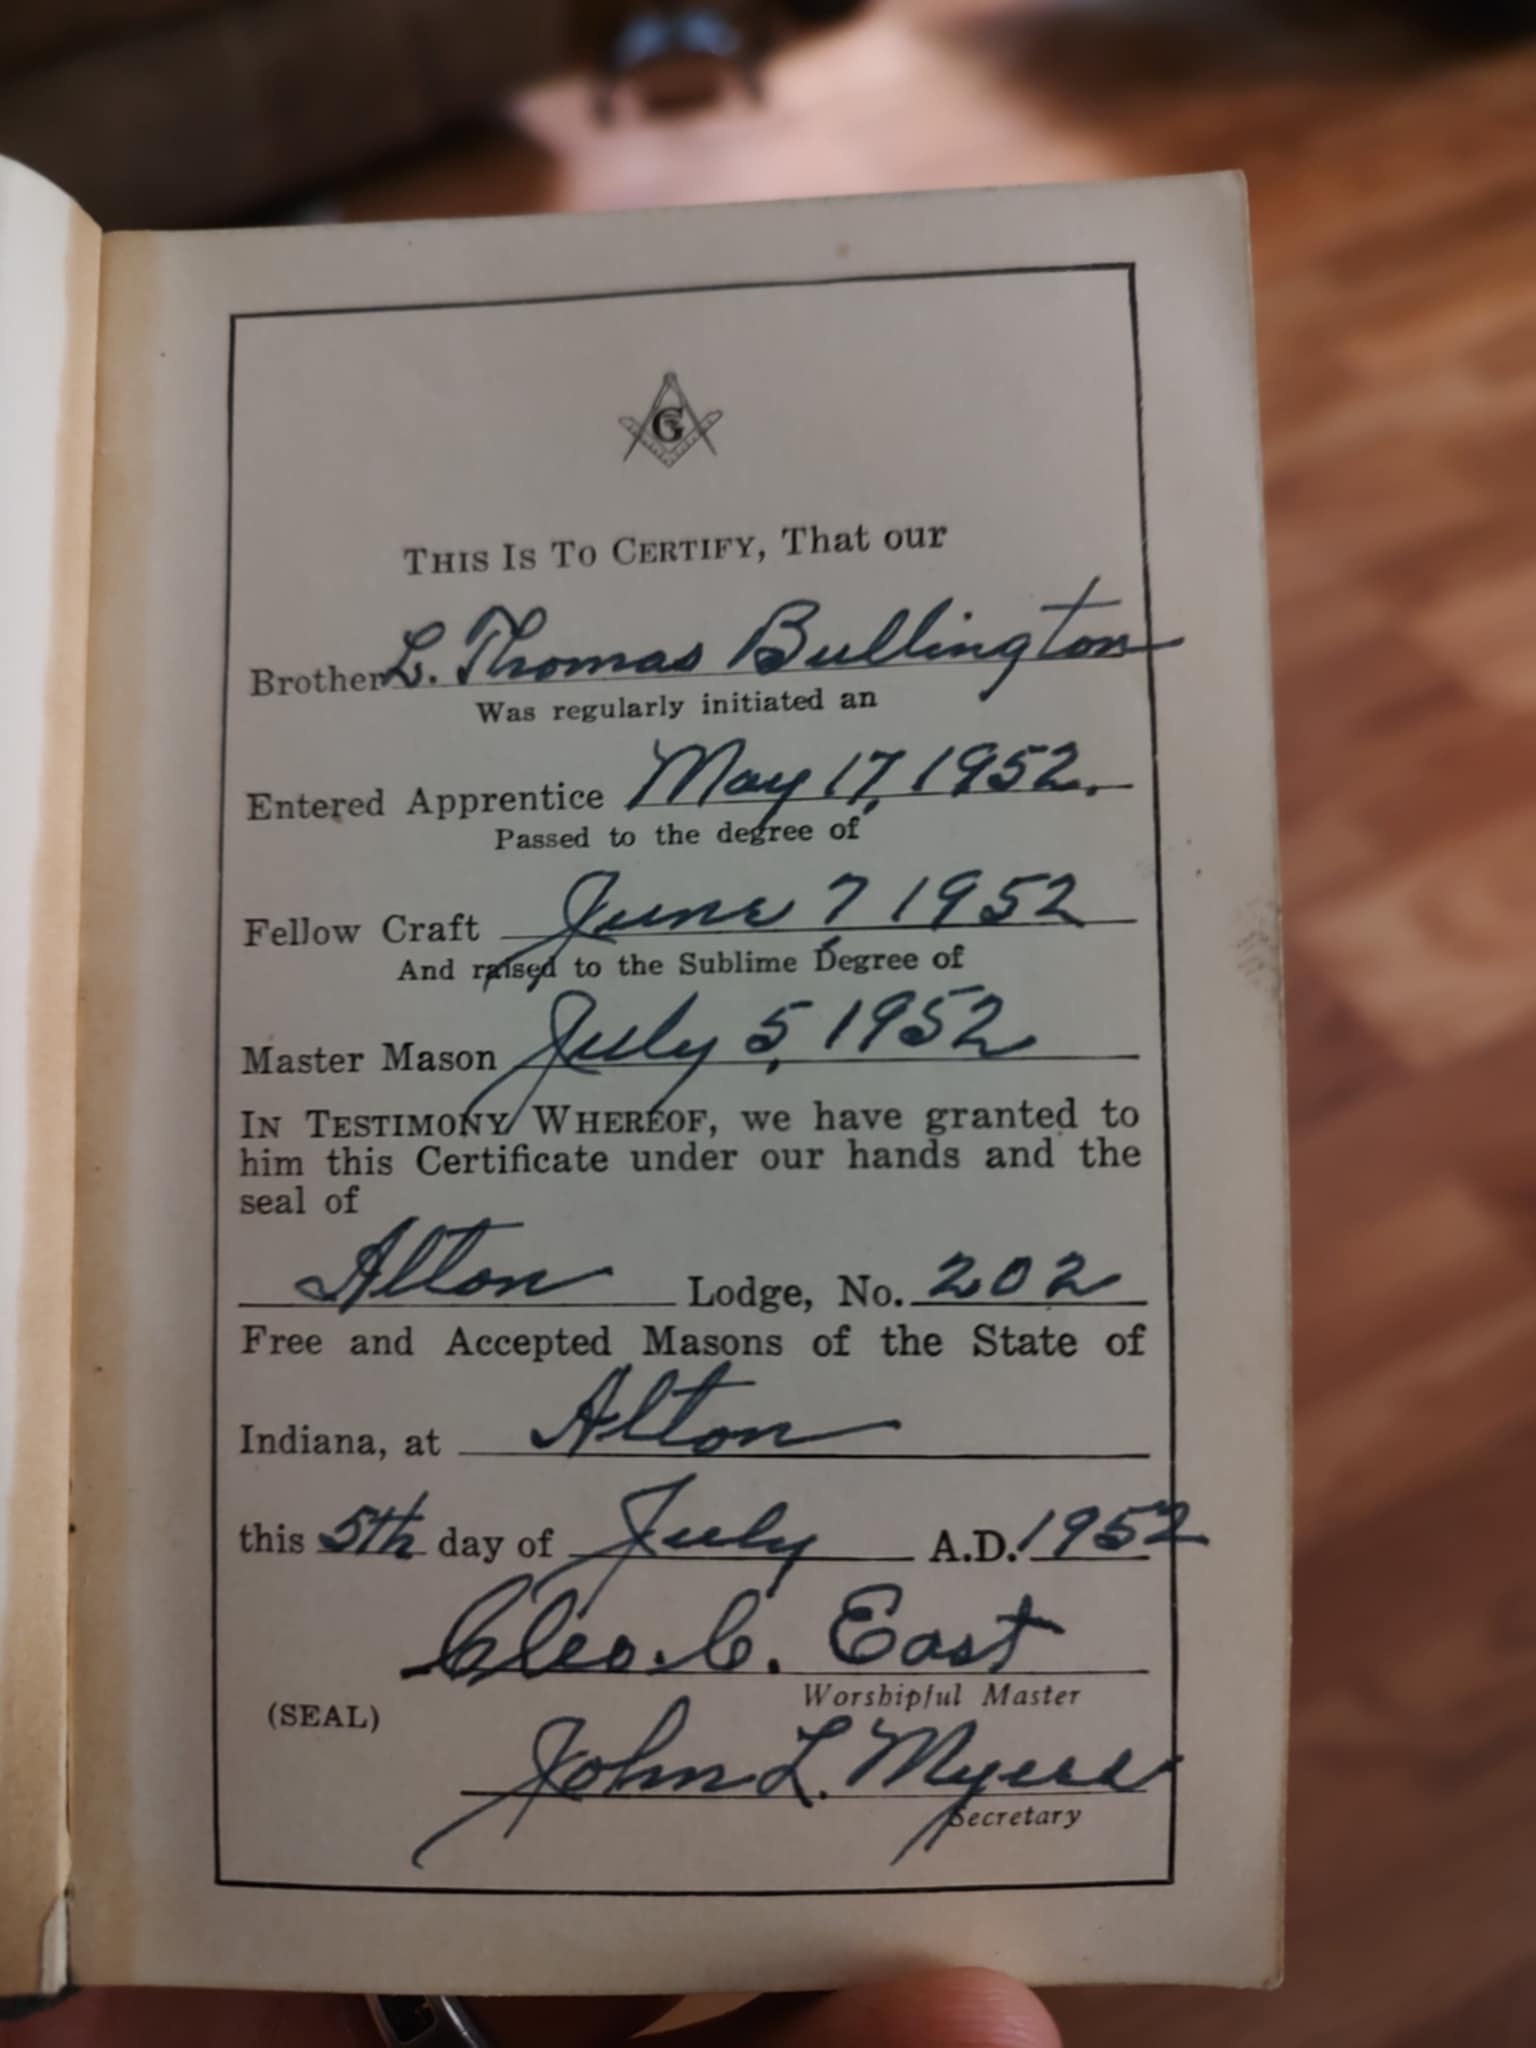 G
THIS IS TO CERTIFY, That our
Brother L. Thomas Bullington
Was regularly initiated an
Entered Apprentice May 17, 1952.
Passed to the degree of
Fellow Craft June 7, 1952
And raised to the Sublime Degree of
Master Mason July 5, 1952
IN TESTIMONY WHEREOF, we have granted to
him this Certificate under our hands and the
seal of
Alton Lodge, No. 202
Free and Accepted Masons of the State of
Indiana, at Alton
this 5th day of July A.D. 1952
Cleo. C. East
Worshipful Master
(SEAL)
John L. Myers
Secretary